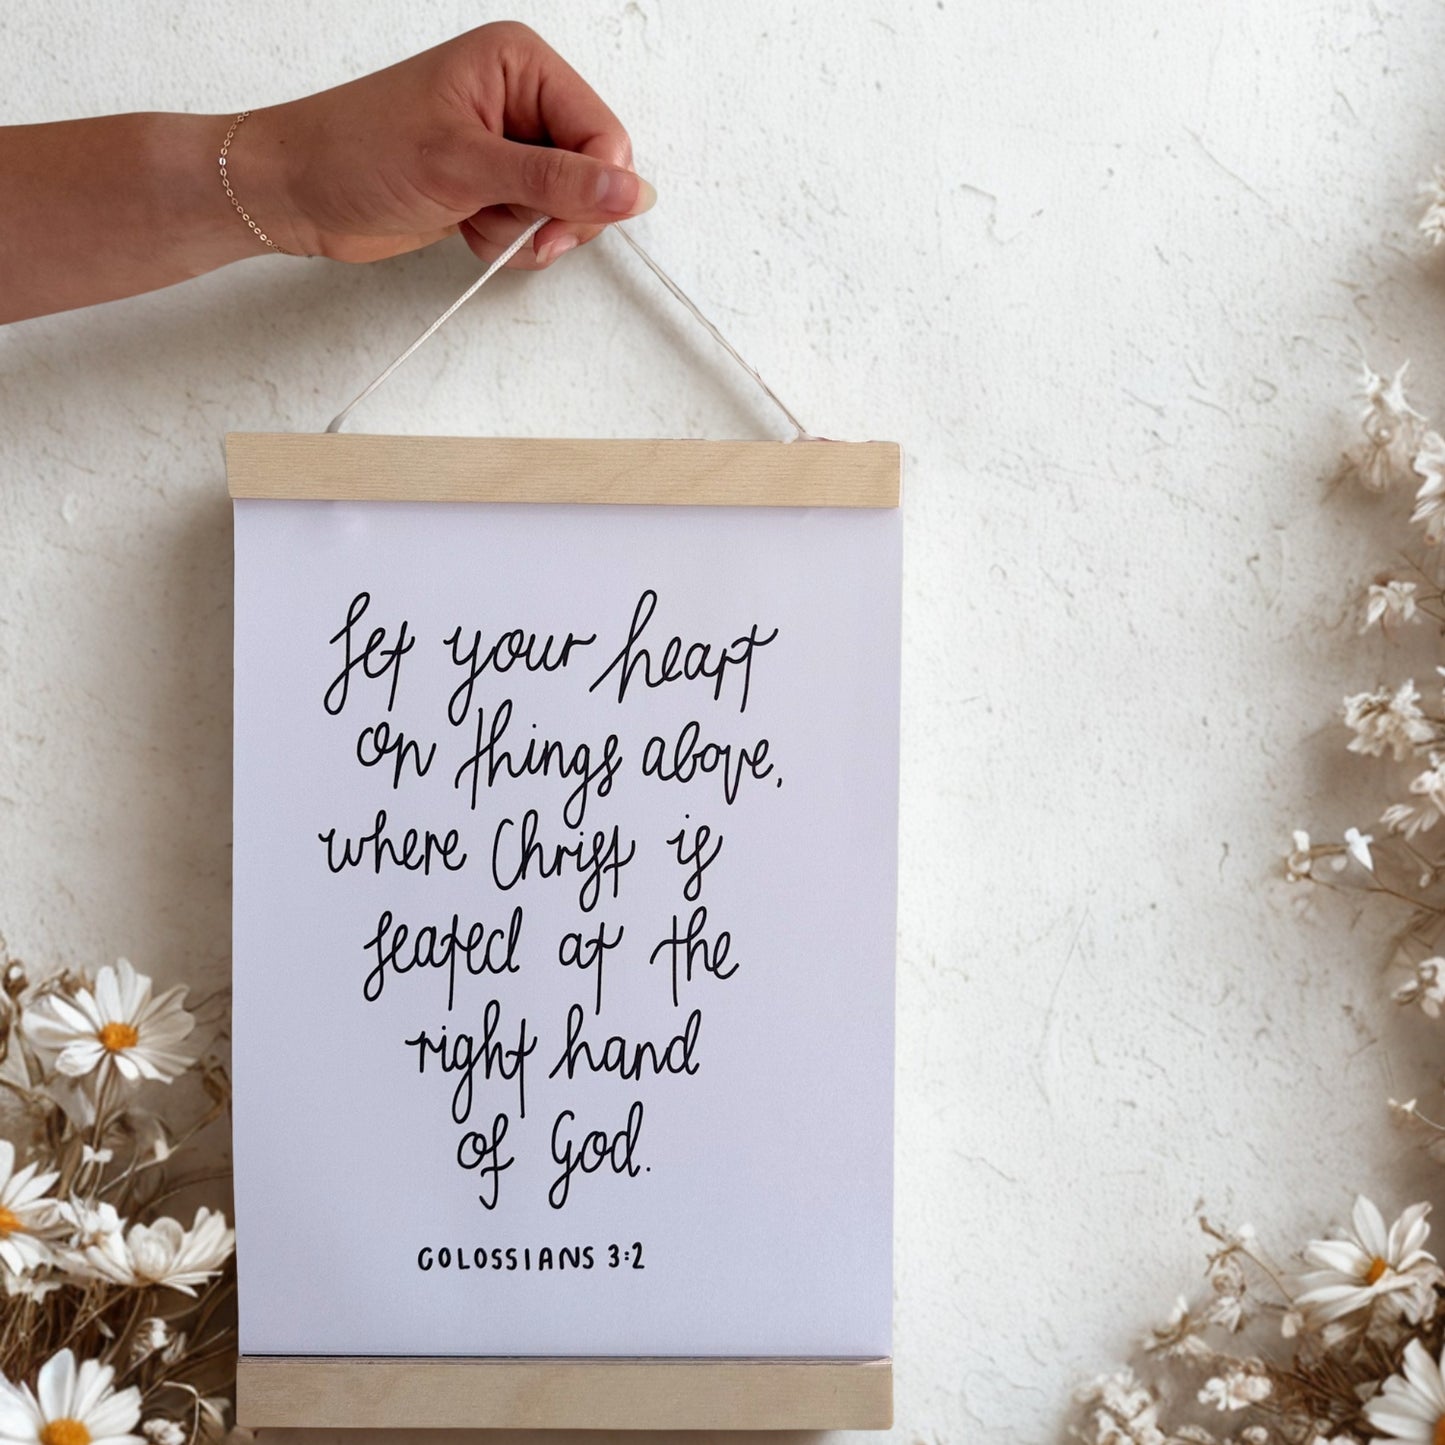 Set your heart
on things above,
where Christ is
seated at the
right hand
of God.
COLOSSIANS 3:2